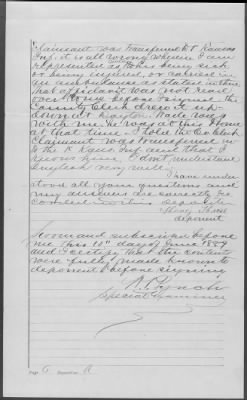 Claimant was transferred to Kansas
Inf. it is all wrong wherein I am
represented as to his being sick
or being injured, or carried in
an ambulance as stated within
that affidavit was not read
over to me before I signed the
County Clerk drew it up
down at Dayton.
with me he was at this Home
at that time. I told the Co. Clerk
claimant was transferred in
to the Kans Inf and that I
know him I don't understand
English very well.
I have under
stood all your questions and
my answers are correctly re
corded in this deposition
deponent
Sworn and subscribed before
me this 10th day of June 1889
and I certify that the contents
were fully made known to
deponent before signing
Special Examiner
Page 6 Deposition A